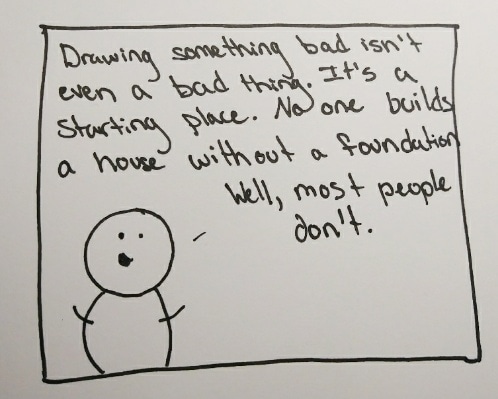 Drawing something bad isn't
even a bad thing. It's a
starting place. No one builds
a house without a foundation
Well, most people
don't.